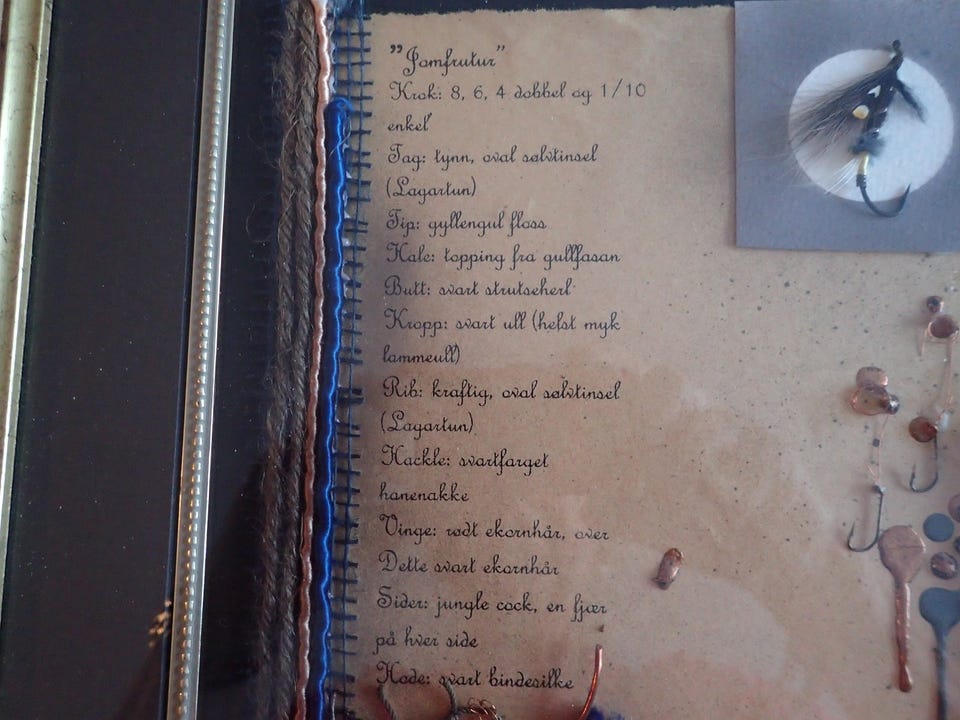 "Jomfrutur"
Krok: 8, 6, 4 dobbel og 1/10
enkel
Tag: tynn, oval sølvtinsel
(Lagartun)
Tip: gyllengul floss
Hale: topping fra gullfasan
Butt: svart strutseherl
Kropp: svart ull (helst myk
lammeull)
Rib: kraftig, oval sølvtinsel
(Lagartun)
Hackle: svartfarget
hanenakke
Vinge: rødt ekornhår, over
Dette svart ekornhår
Sider: jungle cock, en fjær
på hver side
Hode: svart bindesilke